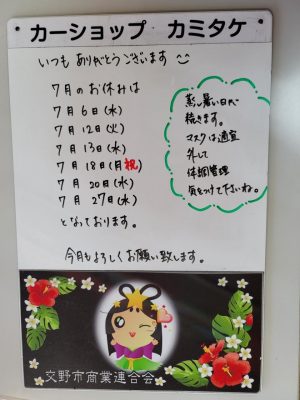 カーショップ カミタケ
いつも ありがとうございます
7月のお休みは
7月 6日(水)
7月 12日(火)
7月 13日(水)
7月 18日(月祝)
7月 20日(水)
7月 27日(水)
となっております。
今月もよろしくお願い致します。
蒸し暑い日が
続きます。
マスクは適宜
外して
体調管理
気をつけて下さいね。
交野市商業連合会